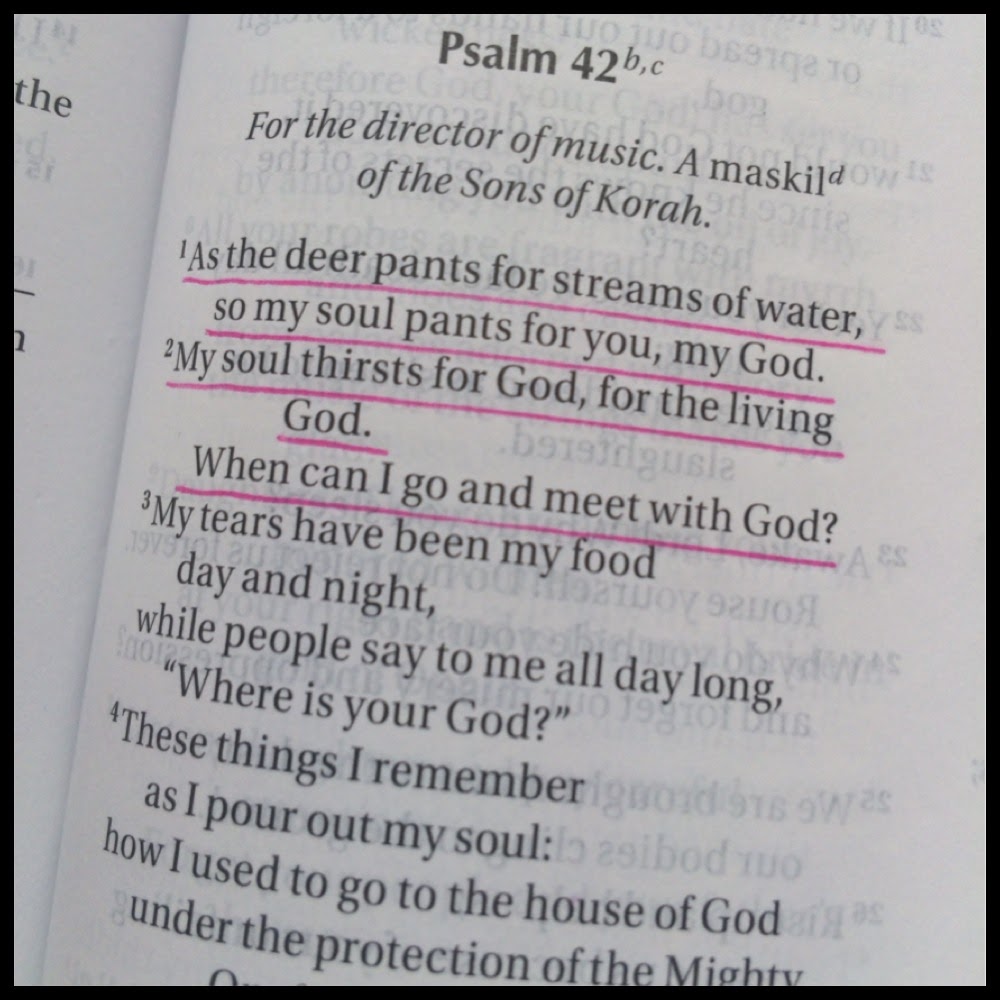 the
Psalm 42b,c
For the director of music. A maskild
of the Sons of Korah.
1As the deer pants for streams of water,
so my soul pants for you, my God.
2My soul thirsts for God, for the living
God.
When can I go and meet with God?
3My tears have been my food
day and night,
while people say to me all day long,
“Where is your God?”
4These things I remember
as I pour out my soul:
how I used to go to the house of God
under the protection of the Mighty